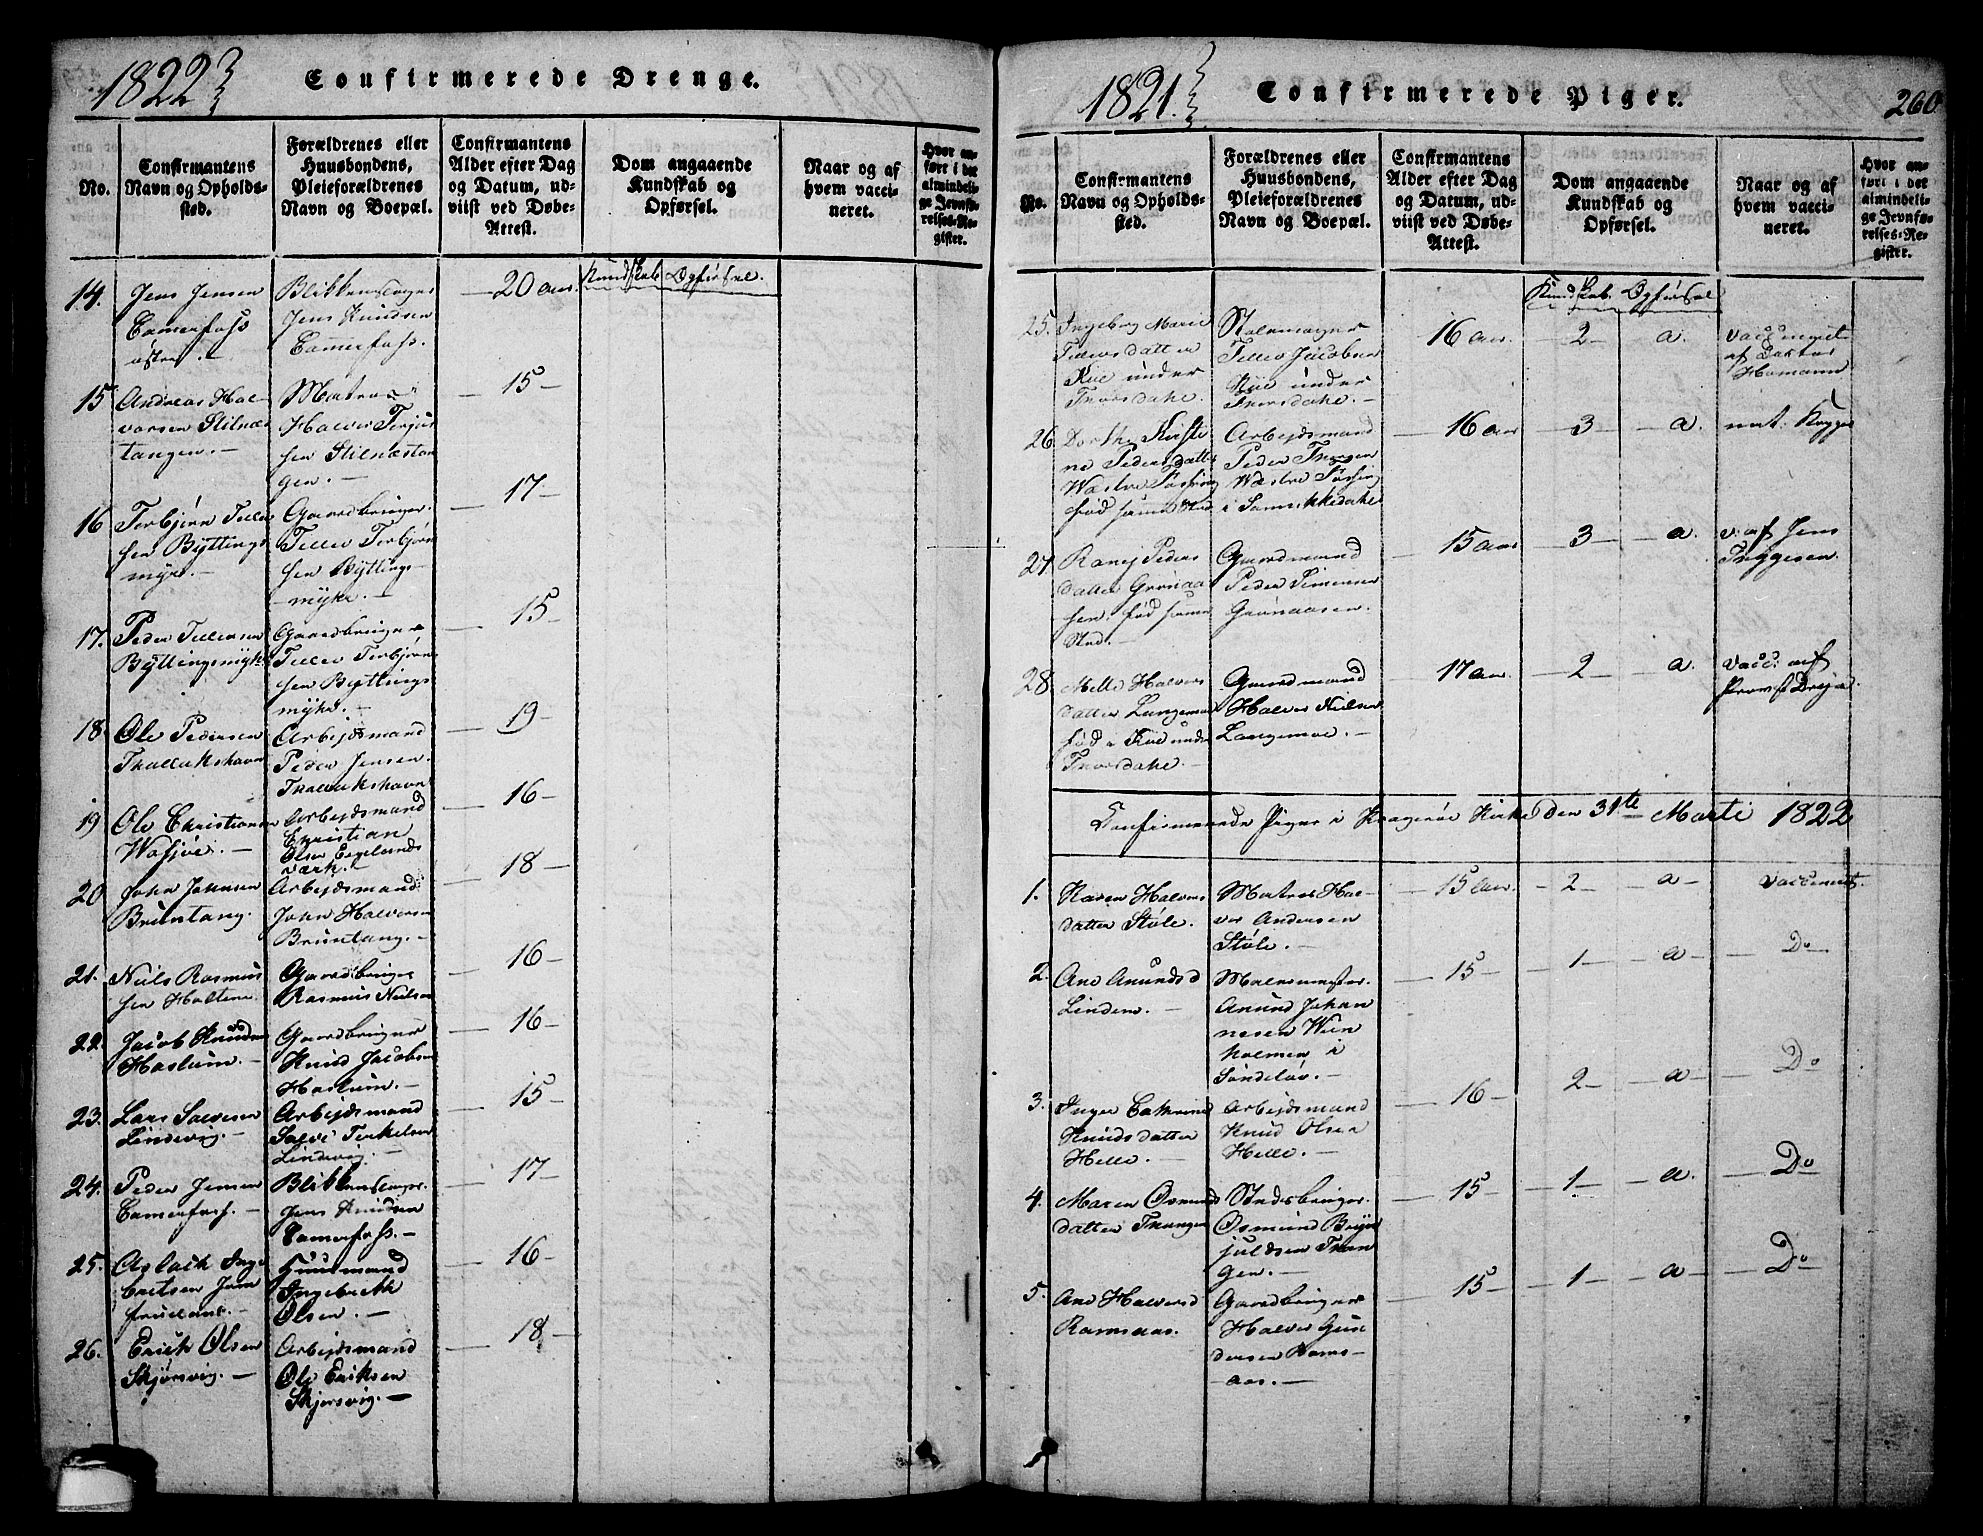 1822
Confirmerede Drenge.
No.
Confirmantens
Navn og Opholds-
sted.
Forældrenes eller
Huusbondens,
Pleieforældrenes
Navn og Boepæl.
Confirmantens
Alder efter Dag
og Datum, ud-
viist ved Døbe-
Attest.
Dom angaaende
Kundskab og
Opførsel.
Naar og af
hvem vacci-
neret.
Hvor an-
ført i det
almindeli-
ge Jevnfø-
relses-Re-
gister.
Kundskab Opførsel.
14. Jens Jensen
østre.
Jens Knudsen
20 aar
15. Andreas Hal-
vorsen Stilnæs
tangen.
Matros
Halvor Terjus
sen Stilnæstan
gen.
15
16 Terbjörn Telle
sen Byttings
myr.
Gaardbruger
Tellev Terbjörn
sen Byttings-
myhr.
17
17. Peder Tellevsen
Byttingsmyhr
Gaardbruger
Tellev Terbjörn
sen Byttings
myhr.
15
18. Ole Pedersen
Thallakshavn
Arbejdsmand
Peder Jensen
Thallakshavn
19
19 Ole Christiansen
Arbejdsmand
Christian
Olsen Egelands
værk.
16
20 John Johnsen
Bruntang.
Arbejdsmand
John Halvorsen
Bruntang.
18
21. Niels Rasmus
sen Holtene.
Gaardbruger
Rasmus Nielsen
16
22. Jacob Knudsen
Haslum.
Gaardbruger
Knud Jacobsen
Haslum.
16
23. Lars Salvesen
Lindvig.
Arbejdsmand
Salve Terkelsen
Lindvig.
15
24. Peder Jensen
Jens Knudsen
17
25. Aslach Inge
bretsen Jom
fruland.
Huusmand
Ingebreth
Olsen.
16
26. Erich Olsen
Skjörsvig.
Arbejdsmand
Ole Eriksen
Skjersvig.
18
1821.
Confirmerede Piger.
260
No.
Confirmantens
Navn og Opholds-
sted.
Forældrenes eller
Huusbondens,
Pleieforældrenes
Navn og Boepæl.
Confirmantens
Alder efter Dag
og Datum, ud-
viist ved Døbe-
Attest.
Dom angaaende
Kundskab og
Opførsel.
Naar og af
hvem vacci-
neret.
Hvor an-
ført i det
almindeli-
ge Jevnfø-
relses-Re-
gister.
Kundskab Opførsel
25. Ingeborg Marie
Tellevsdatter
Kiil under
Thorsdahl.
Stolemager
Tellev Jacobsen
Kiil under
Thorsdahl.
16 aar. 2 a. vaccineret
af Doctor
Homann
26. Dorthe Kirsti-
ne Pedersdatter
Westre Tøssing
född samme Sted
Arbejdsmand
Peder Thorsen
Westre Tøssing
i Sannikkedahl
16 aar 3 a.
27. Ranej Peders
datter Grönaa
sen. född samme
Sted.
Gaardmand
Peder Simensen
Grönaasen.
15 aar 3 a. v. af Jens
Tryggesen.
28. Melle Halvors
datter Langemoe
född i Kiil under
Thorsdahl.
Gaardmand
Halvor Nielsen
Langemoe.
17 aar. 2 a. vacc. af
Confirmerede Piger i Kragerøe Kirke den 31te Marti 1822
1. Karen Halvors
datter Støle.
Matros Hal-
vor Andersen
Støle.
15 aar. 2 a vaccineret.
2. Ane Anundsd
Linden.
Anund Johan
nesen
holmen i
Söndeløv.
15 1 a Do
3. Inger Cathrine
Knudsdatter
Helle.
Arbejdsmand
Knud Olsen
Helle.
16 2 a Do
4. Maren Osmunds
datter Trangen
Stedsbruger
Osmund Bryn
juldsen Tran
gen.
15 1 a. Do
5. Ane Halvorsd
Ramsaas.
Gaardbruger
Halvor Gun
dersen Rams-
aas.
15 1 a Do